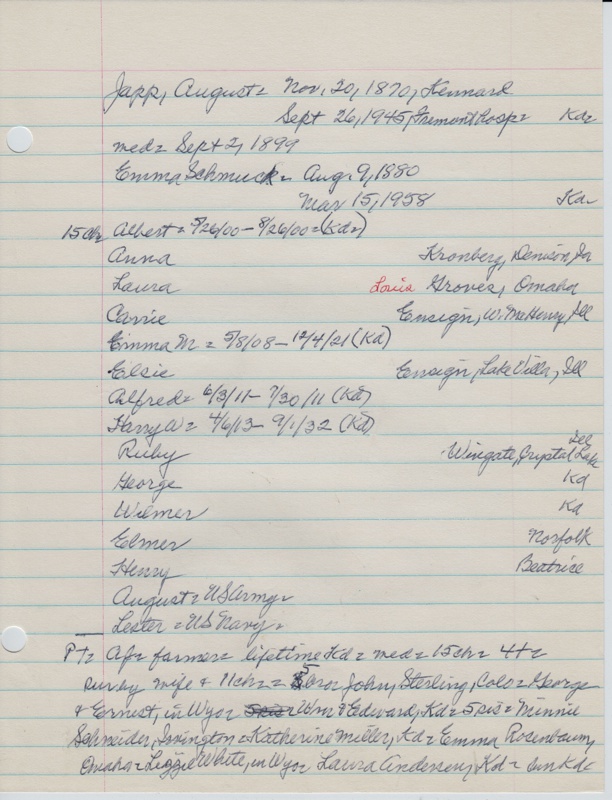 Japp, August = Nov. 20, 1870, Kennard
Sept 26, 1945, Fremont Hosp = Kd =
med = Sept 2, 1899
Emma Schmuck = Aug. 9, 1880
Mar 15, 1958 Kd =
15 Ch = Albert = 5/26/00 - 8/26/00 = (Kd =)
Anna Kronberg, Denison, Ia
Laura Louis Groves, Omaha
Carrie Ensign, W. McHenry, Ill
Emma M = 5/8/08 - 12/4/21 (Kd)
Elsie Ensign, Lake Villa, Ill
Alfred = 6/3/11 - 7/30/11 (Kd)
Harry W = 4/6/13 - 9/1/32 (Kd)
Ruby Wingate, Crystal Lake Ill
George Kd
Wilmer Kd
Elmer Norfolk
Henry Beatrice
August = US Army =
Lester = US Navy =
PT = Af = farmer = lifetime Kd = med = 15 ch = 4 +=
surv by wife & 11 ch = = 5 bros John, Sterling, Colo = George
& Ernest, in Wyo = Wm & Edward, Kd = 5 sis = Minnie
Schneider, Irvington = Katherine Miller, Kd = Emma Rosenbaum,
Omaha = Lizzie White, in Wyo = Laura Andersen, Kd = bur Kd =